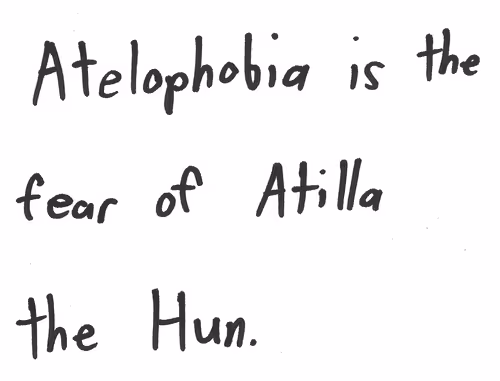 Atelophobia is the
fear of Atilla
the Hun.